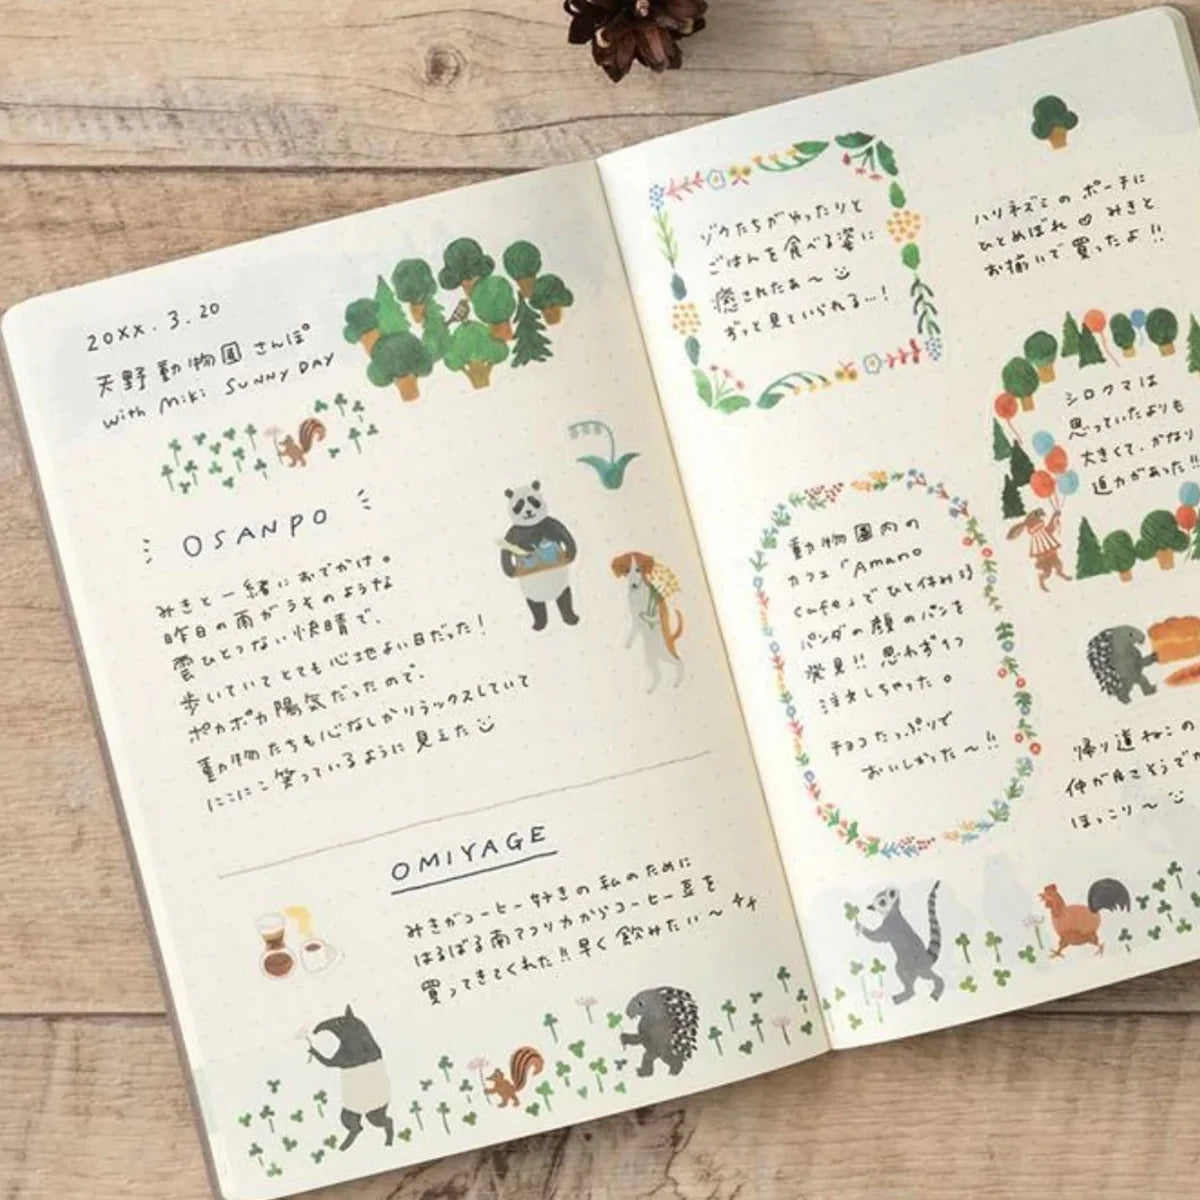 20XX.3.20
天野動物園さんぽ
with Miki SUNNY DAY
OSANPO
みきと一緒におでかけ。
昨日の雨がうそのような
雲ひとつない快晴で、
歩いていてとても心地よい日だった！
ポカポカ陽気だったので、
動物たちも心なしかリラックスしていて
にこにこ笑っているように見えた
OMIYAGE
みきがコーヒー好きの私のために
はるばる南アフリカからコーヒー豆を
買ってきてくれた!!早く飲みたい〜
ゾウたちがゆったりと
ごはんを食べる姿に
癒されたあ〜
ずっと見ていられる…！
ハリネズミのポーチに
ひとめぼれ♡みきと
お揃いで買ったよ!!
シロクマは
思っていたよりも
大きくて、かなり
迫力があった!!
動物園内の
カフェ「Amano
cafe」でひと休み
パンダの顔のパンを
発見!!思わず1つ
注文しちゃった。
チョコたっぷりで
おいしかった〜!!
帰り道ねこの
仲が良さそうで
ほっこり〜